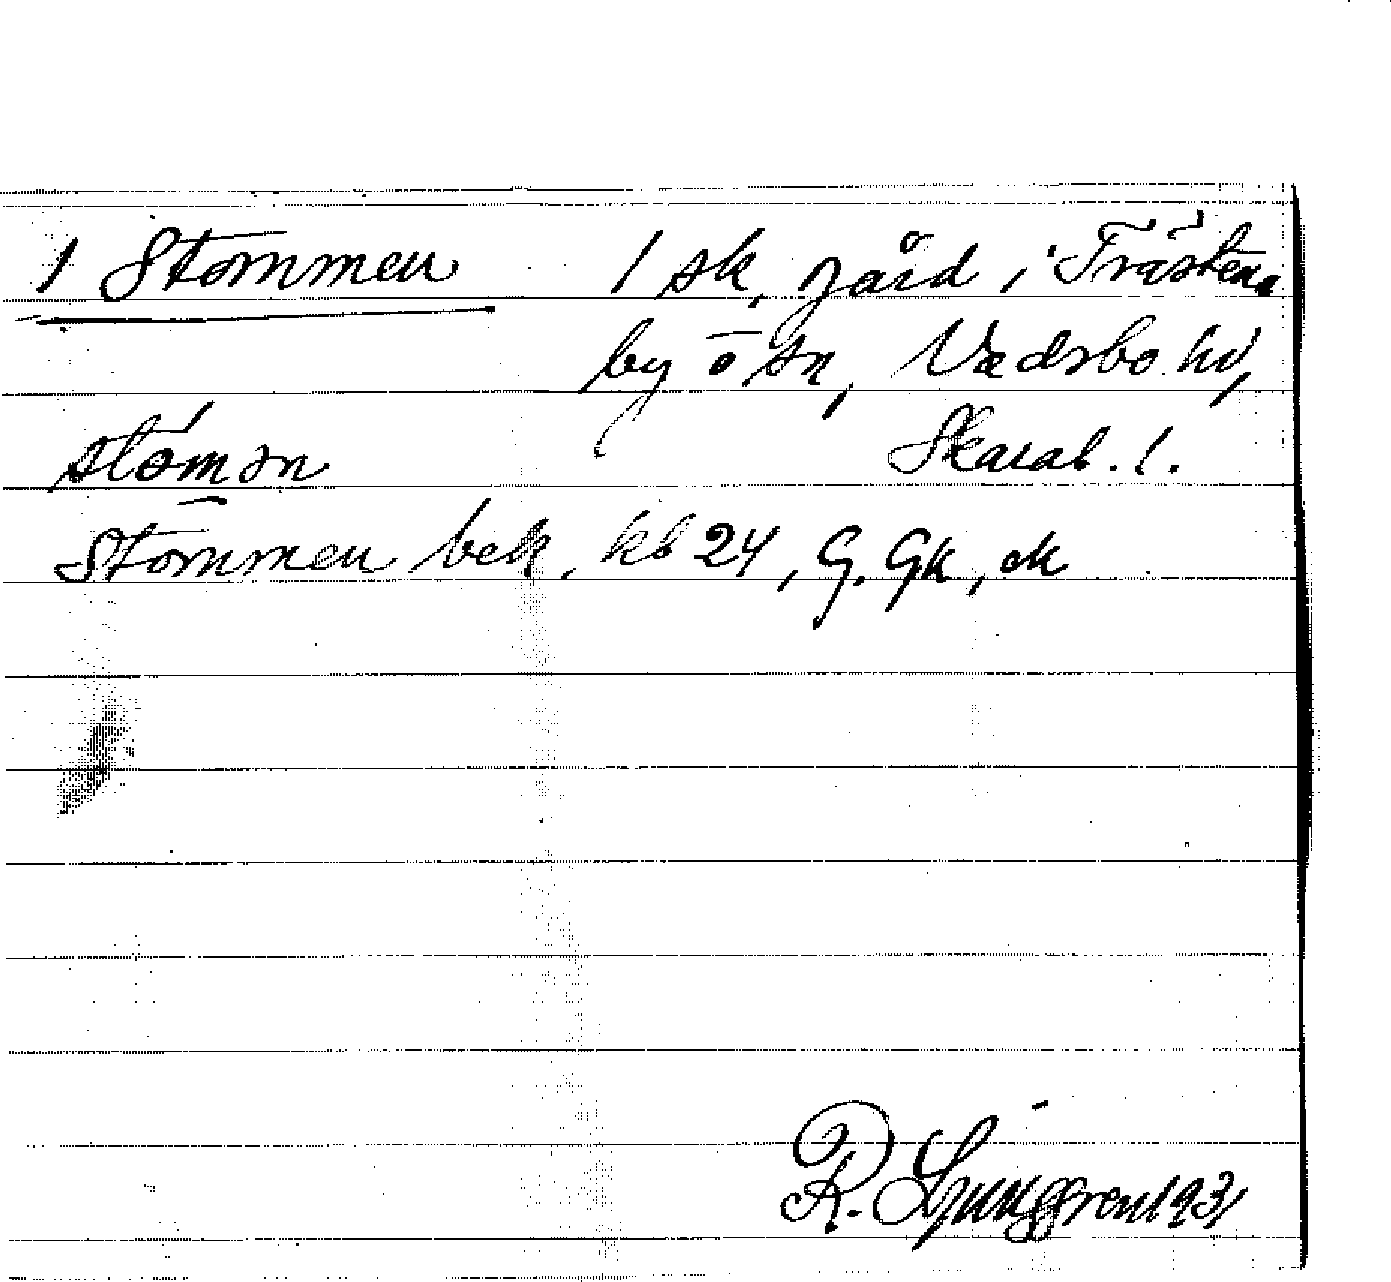 1 Stommen 1 sk. gård i Trästena
by o sn, Vadsbo hd,
stomən Skarab. l.
Stommen bek. kb 24, G. Gk, ek
R. Ljunggren 1931